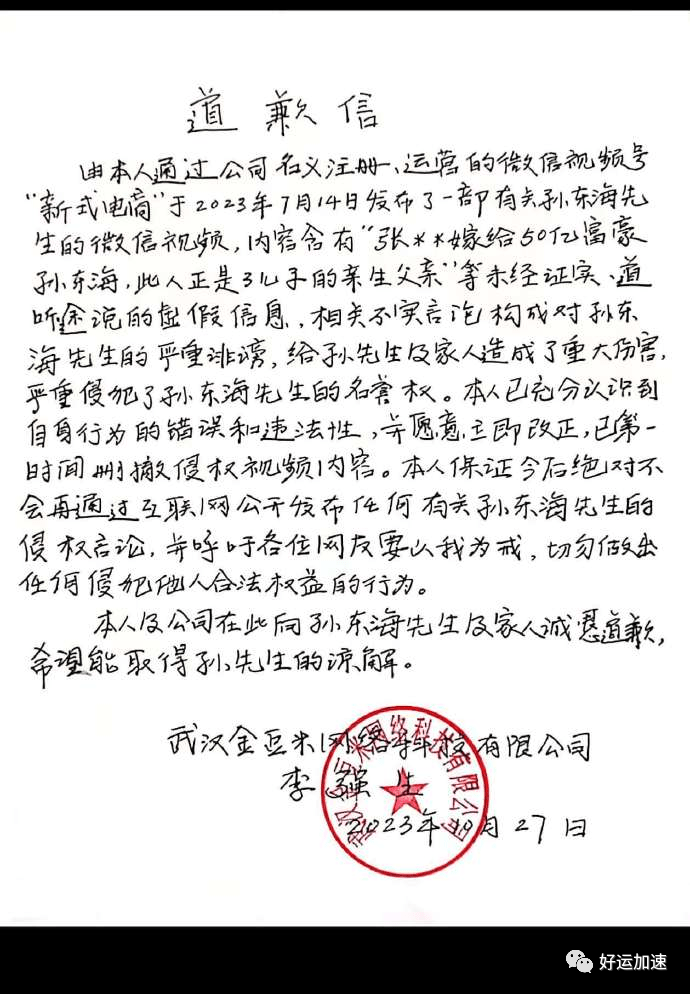 道歉信
由本人通过公司名义注册、运营的微信视频号
“新式电商”于2023年7月14日发布了一部有关孙东海先
生的微信视频，内容含有“张**嫁给50亿富豪
孙东海，此人正是3儿子的亲生父亲”等未经证实、道
听途说的虚假信息，相关不实言论构成对孙东
海先生的严重诽谤，给孙先生及家人造成了重大伤害，
严重侵犯了孙东海先生的名誉权。本人已充分认识到
自身行为的错误和违法性，并愿意立即改正，已第一
时间删撤侵权视频内容。本人保证今后绝对不
会再通过互联网公开发布任何有关孙东海先生的
侵权言论，并呼吁各位网友要以我为戒，切勿做出
任何侵犯他人合法权益的行为。
本人及公司在此向孙东海先生及家人诚恳道歉，
希望能取得孙先生的谅解。
武汉金亚米网络科技有限公司
李强生
2023年10月27日
武汉金亚米网络科技有限公司
好运加速